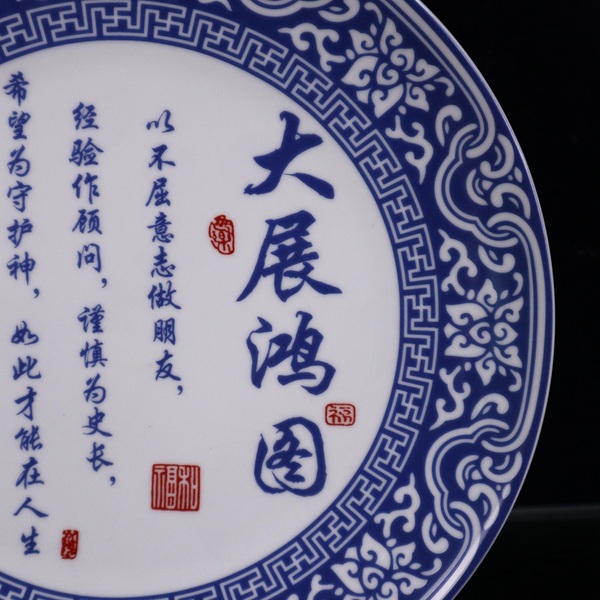 大展鸿图
以不屈意志做朋友，
经验作顾问，谨慎为史长，
希望为守护神，如此才能在人生
福